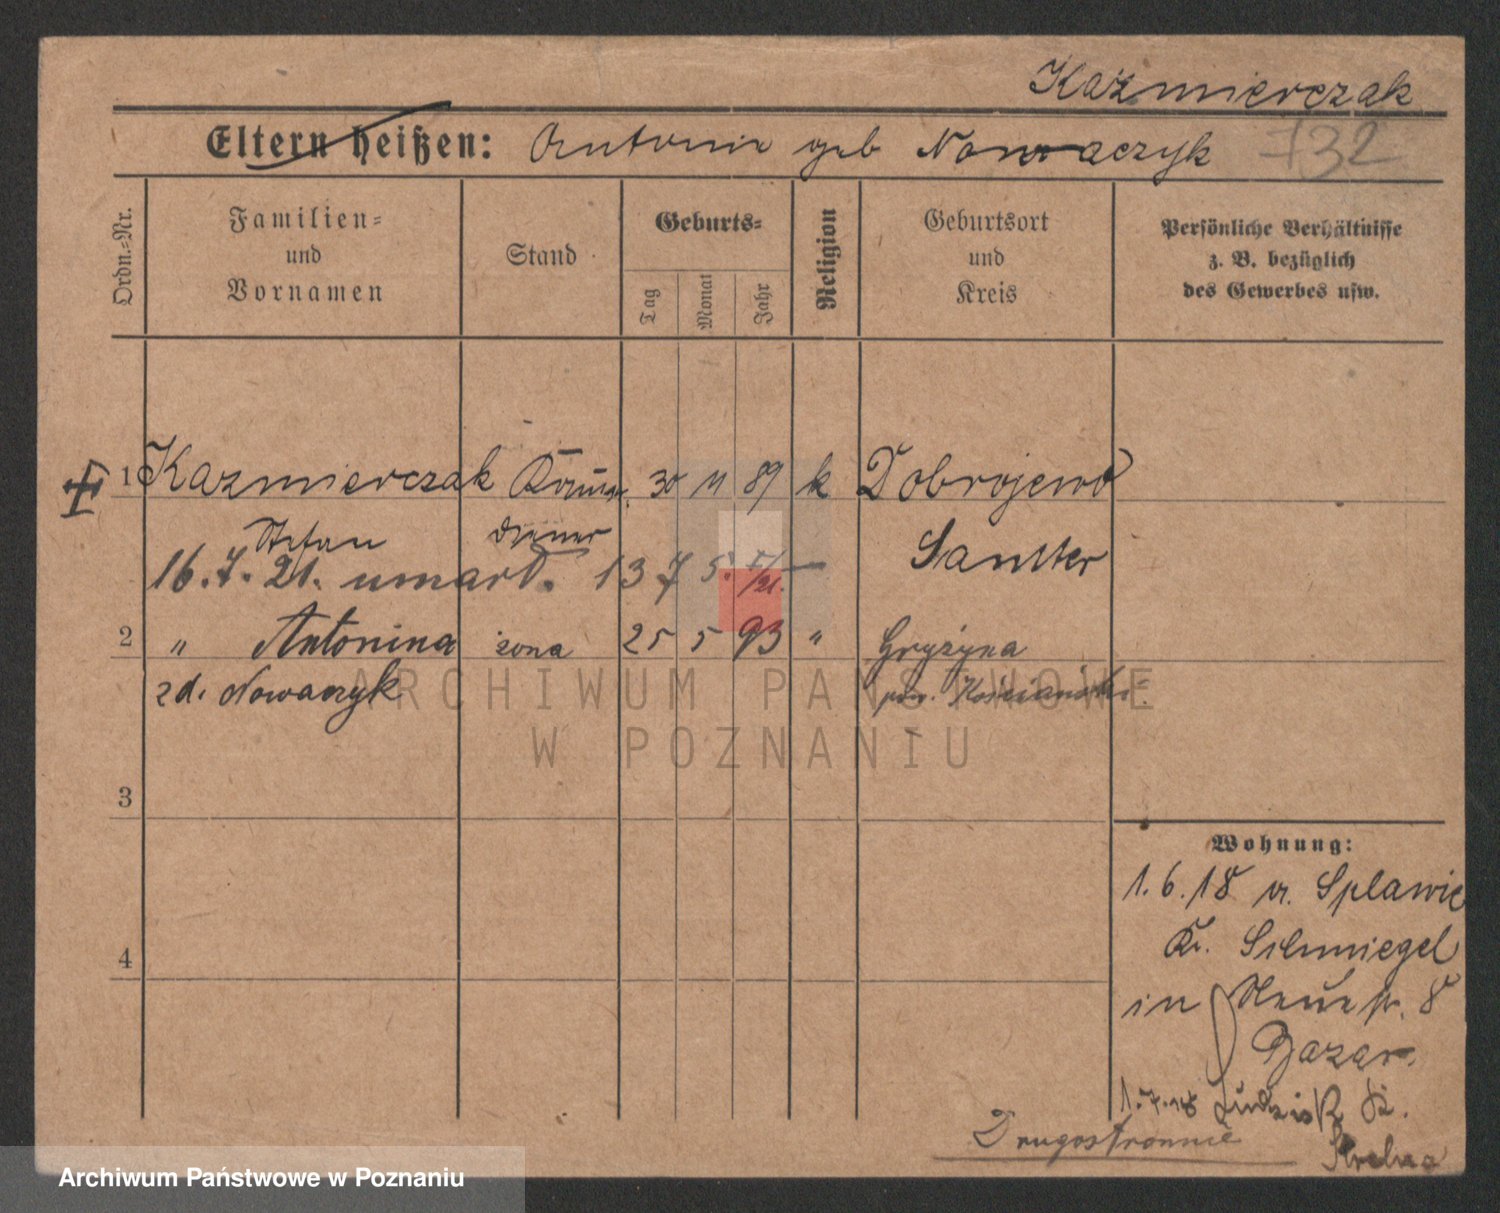 Kaźmierczak
Eltern heißen: Antonie geb Nowaczyk 732
Ordn.-Nr.
Familien-
und
Vornamen
Stand
Geburts-
Tag
Monat
Jahr
Religion
Geburtsort
und
Kreis
Persönliche Verhältnisse
z. B. bezüglich
des Gewerbes usw.
1 Kazmierczak 30 11 89 k Dobrojewo
Stefan diener Samter
16.7.21. umarł. 13 7 5.
2 " Antonina żona 25 5 93 " Gryżyna
zd. Nowaczyk pow. Kościański
3
4
Wohnung:
1.6.18 v. Splawie
Kr. Schmiegel
in Neue str. 8
Bazar.
1.7.18 Ludzisk Kr.
Strelno
Drugostronnie
ARCHIWUM PAŃSTWOWE
W POZNANIU
Archiwum Państwowe w Poznaniu